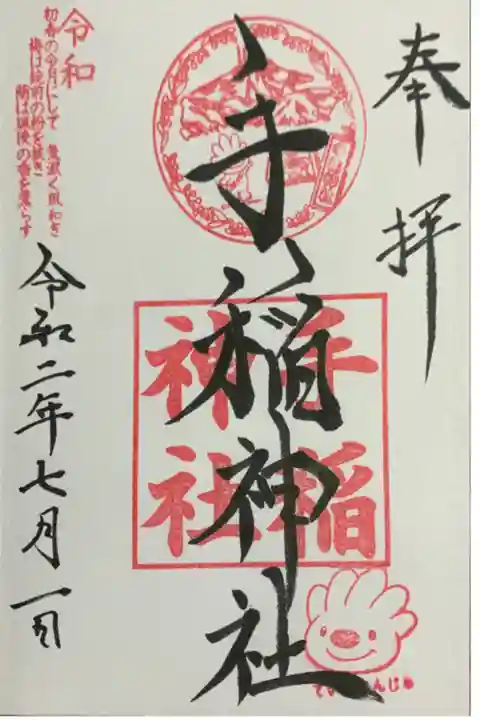 奉拝
手稲神社
手稲
神社
令和二年七月一日
令和
初春の令月にして 気淑く風和ぎ
梅は鏡前の粉を披き
蘭は珮後の香を薫らす